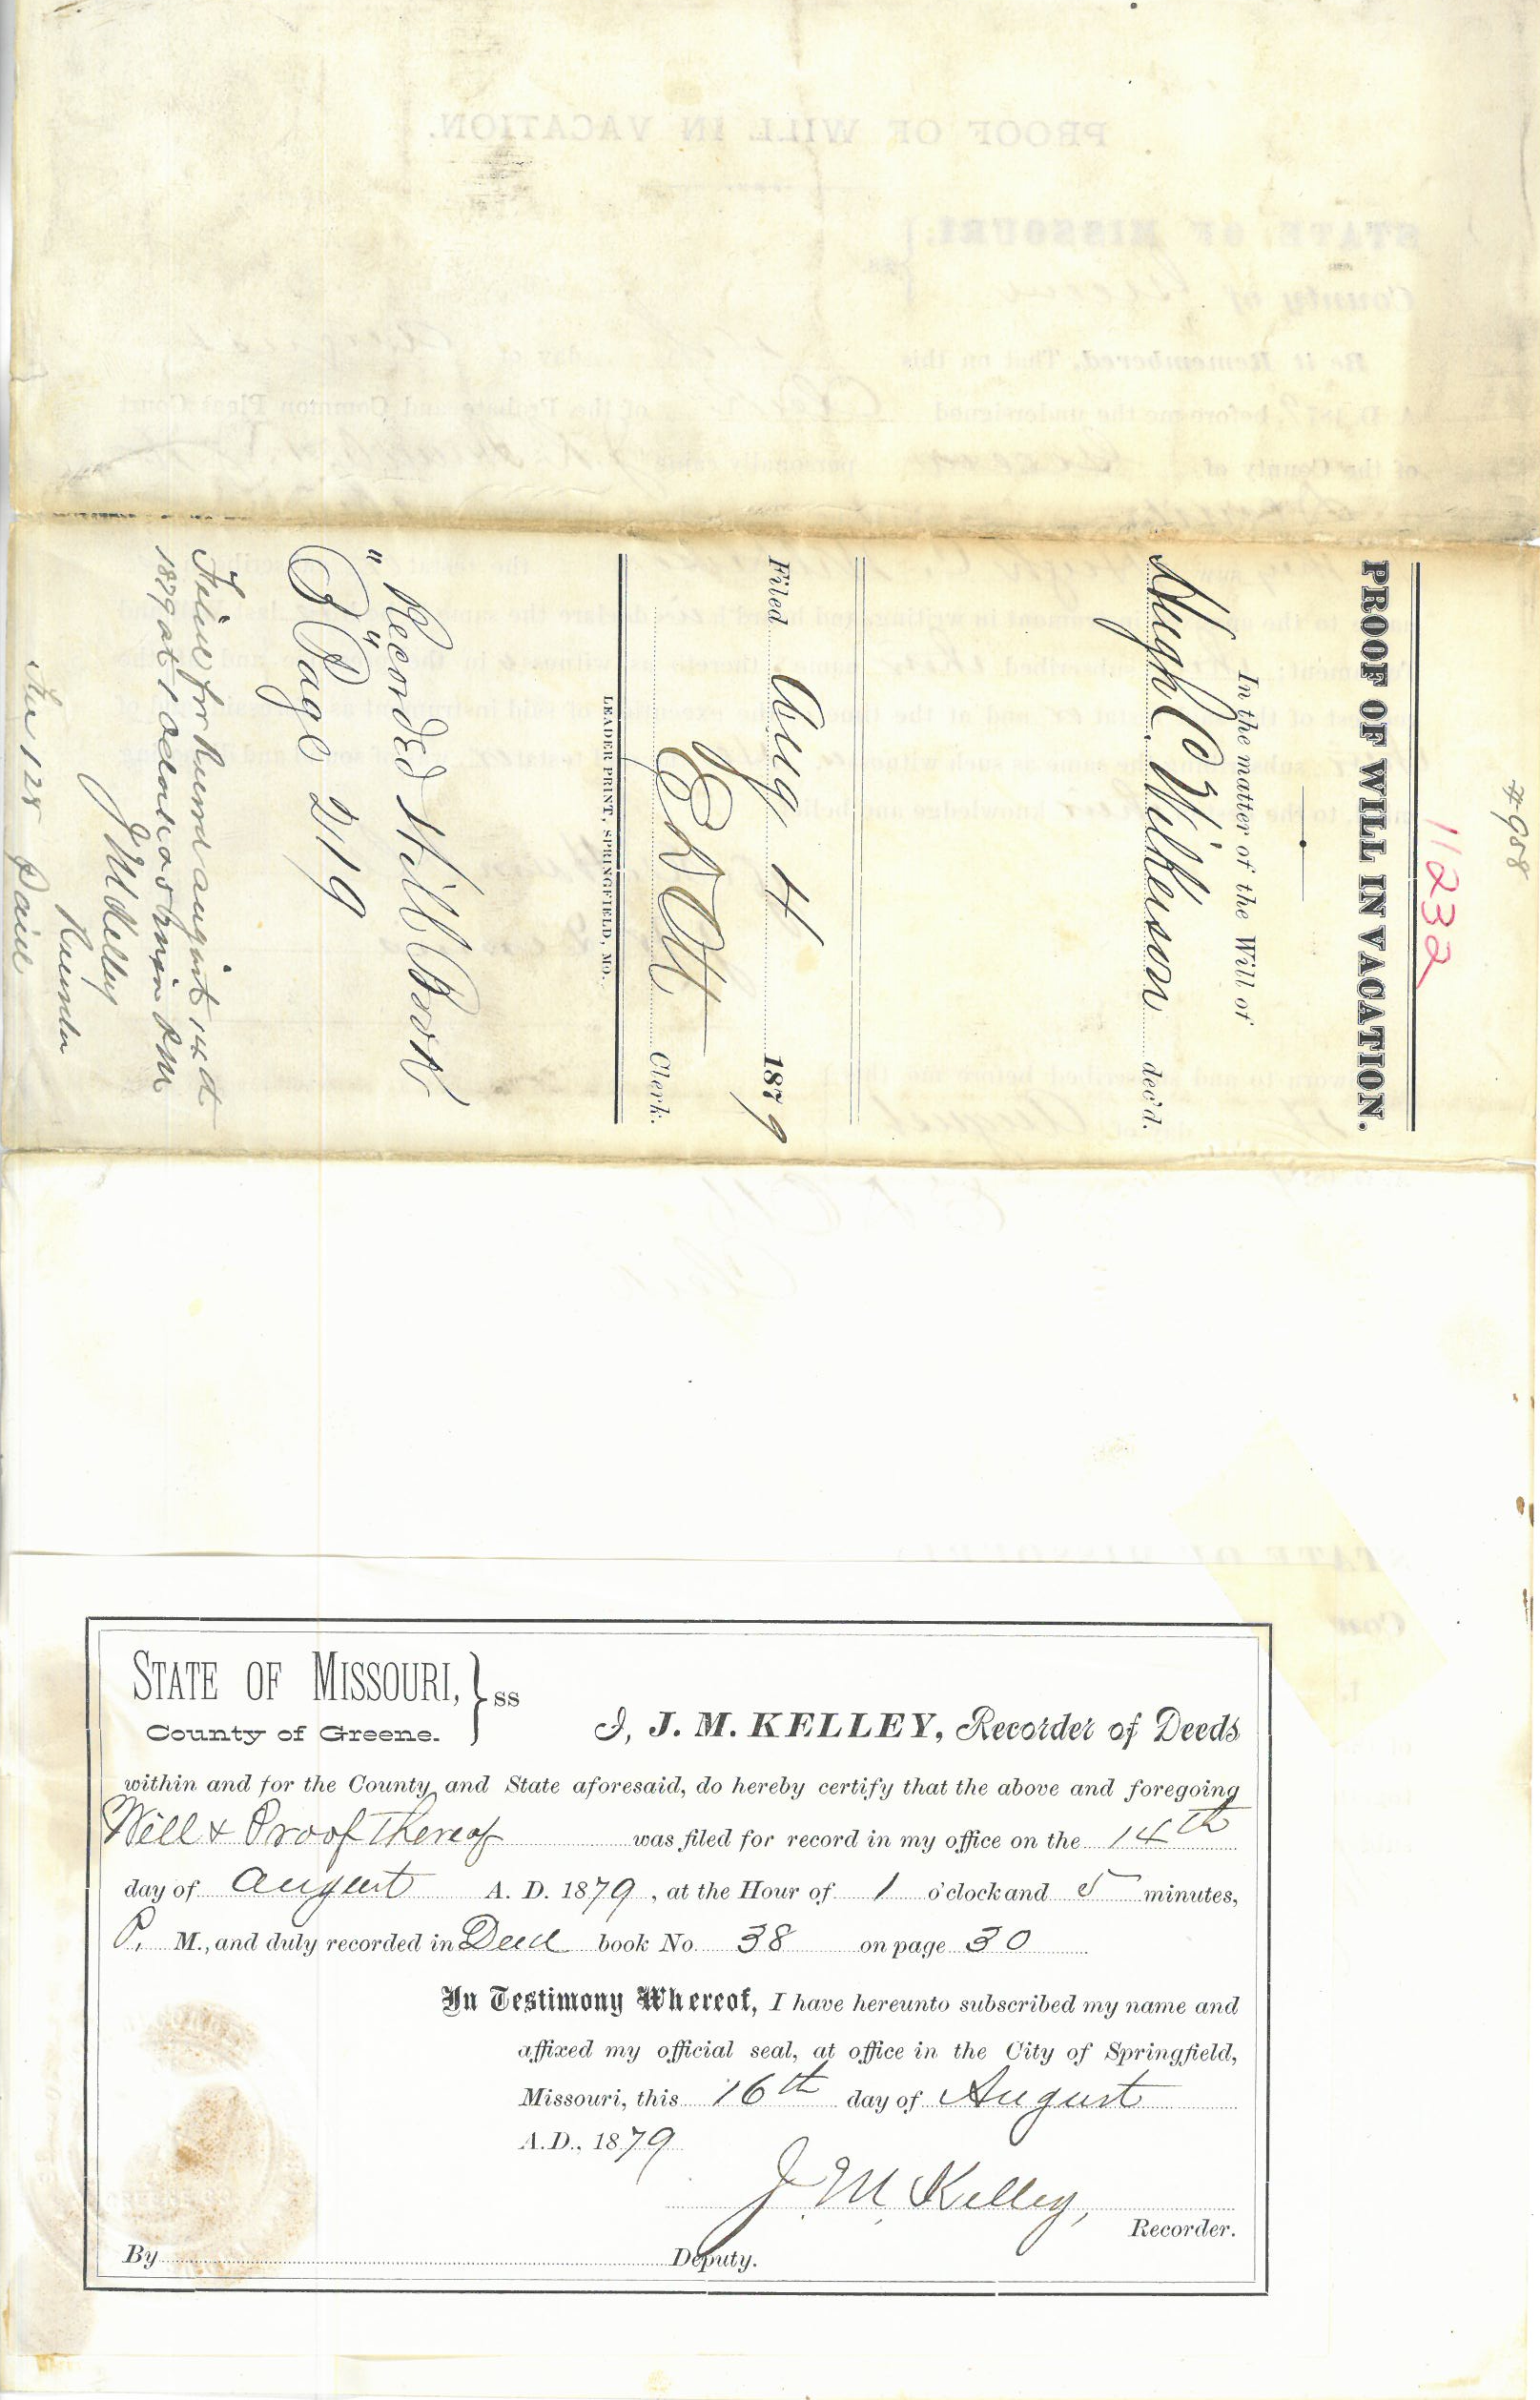 #908
11232
PROOF OF WILL IN VACATION.
In the matter of the Will of
Hugh C. Wilkerson dec'd.
Filed Aug 4 1879
E D Ott Clerk.
LEADER PRINT, SPRINGFIELD, MO.
Recorded Will Book
"B" Page 219
for Record august 14th
1879 at 1 Oclock & 5 min P M
J M Kelley
Recorder
Fee 1 25 Paid
STATE OF MISSOURI, } ss
County of Greene.
I, J. M. KELLEY, Recorder of Deeds
within and for the County and State aforesaid, do hereby certify that the above and foregoing
Will & Proof Thereof was filed for record in my office on the 14th
day of August A. D. 1879, at the Hour of 1 o'clock and 5 minutes,
P. M., and duly recorded in Deed book No. 38 on page 30
In Testimony Whereof, I have hereunto subscribed my name and
affixed my official seal, at office in the City of Springfield,
Missouri, this 16th day of August
A.D., 1879
J. M. Kelley,
Recorder.
By Deputy.